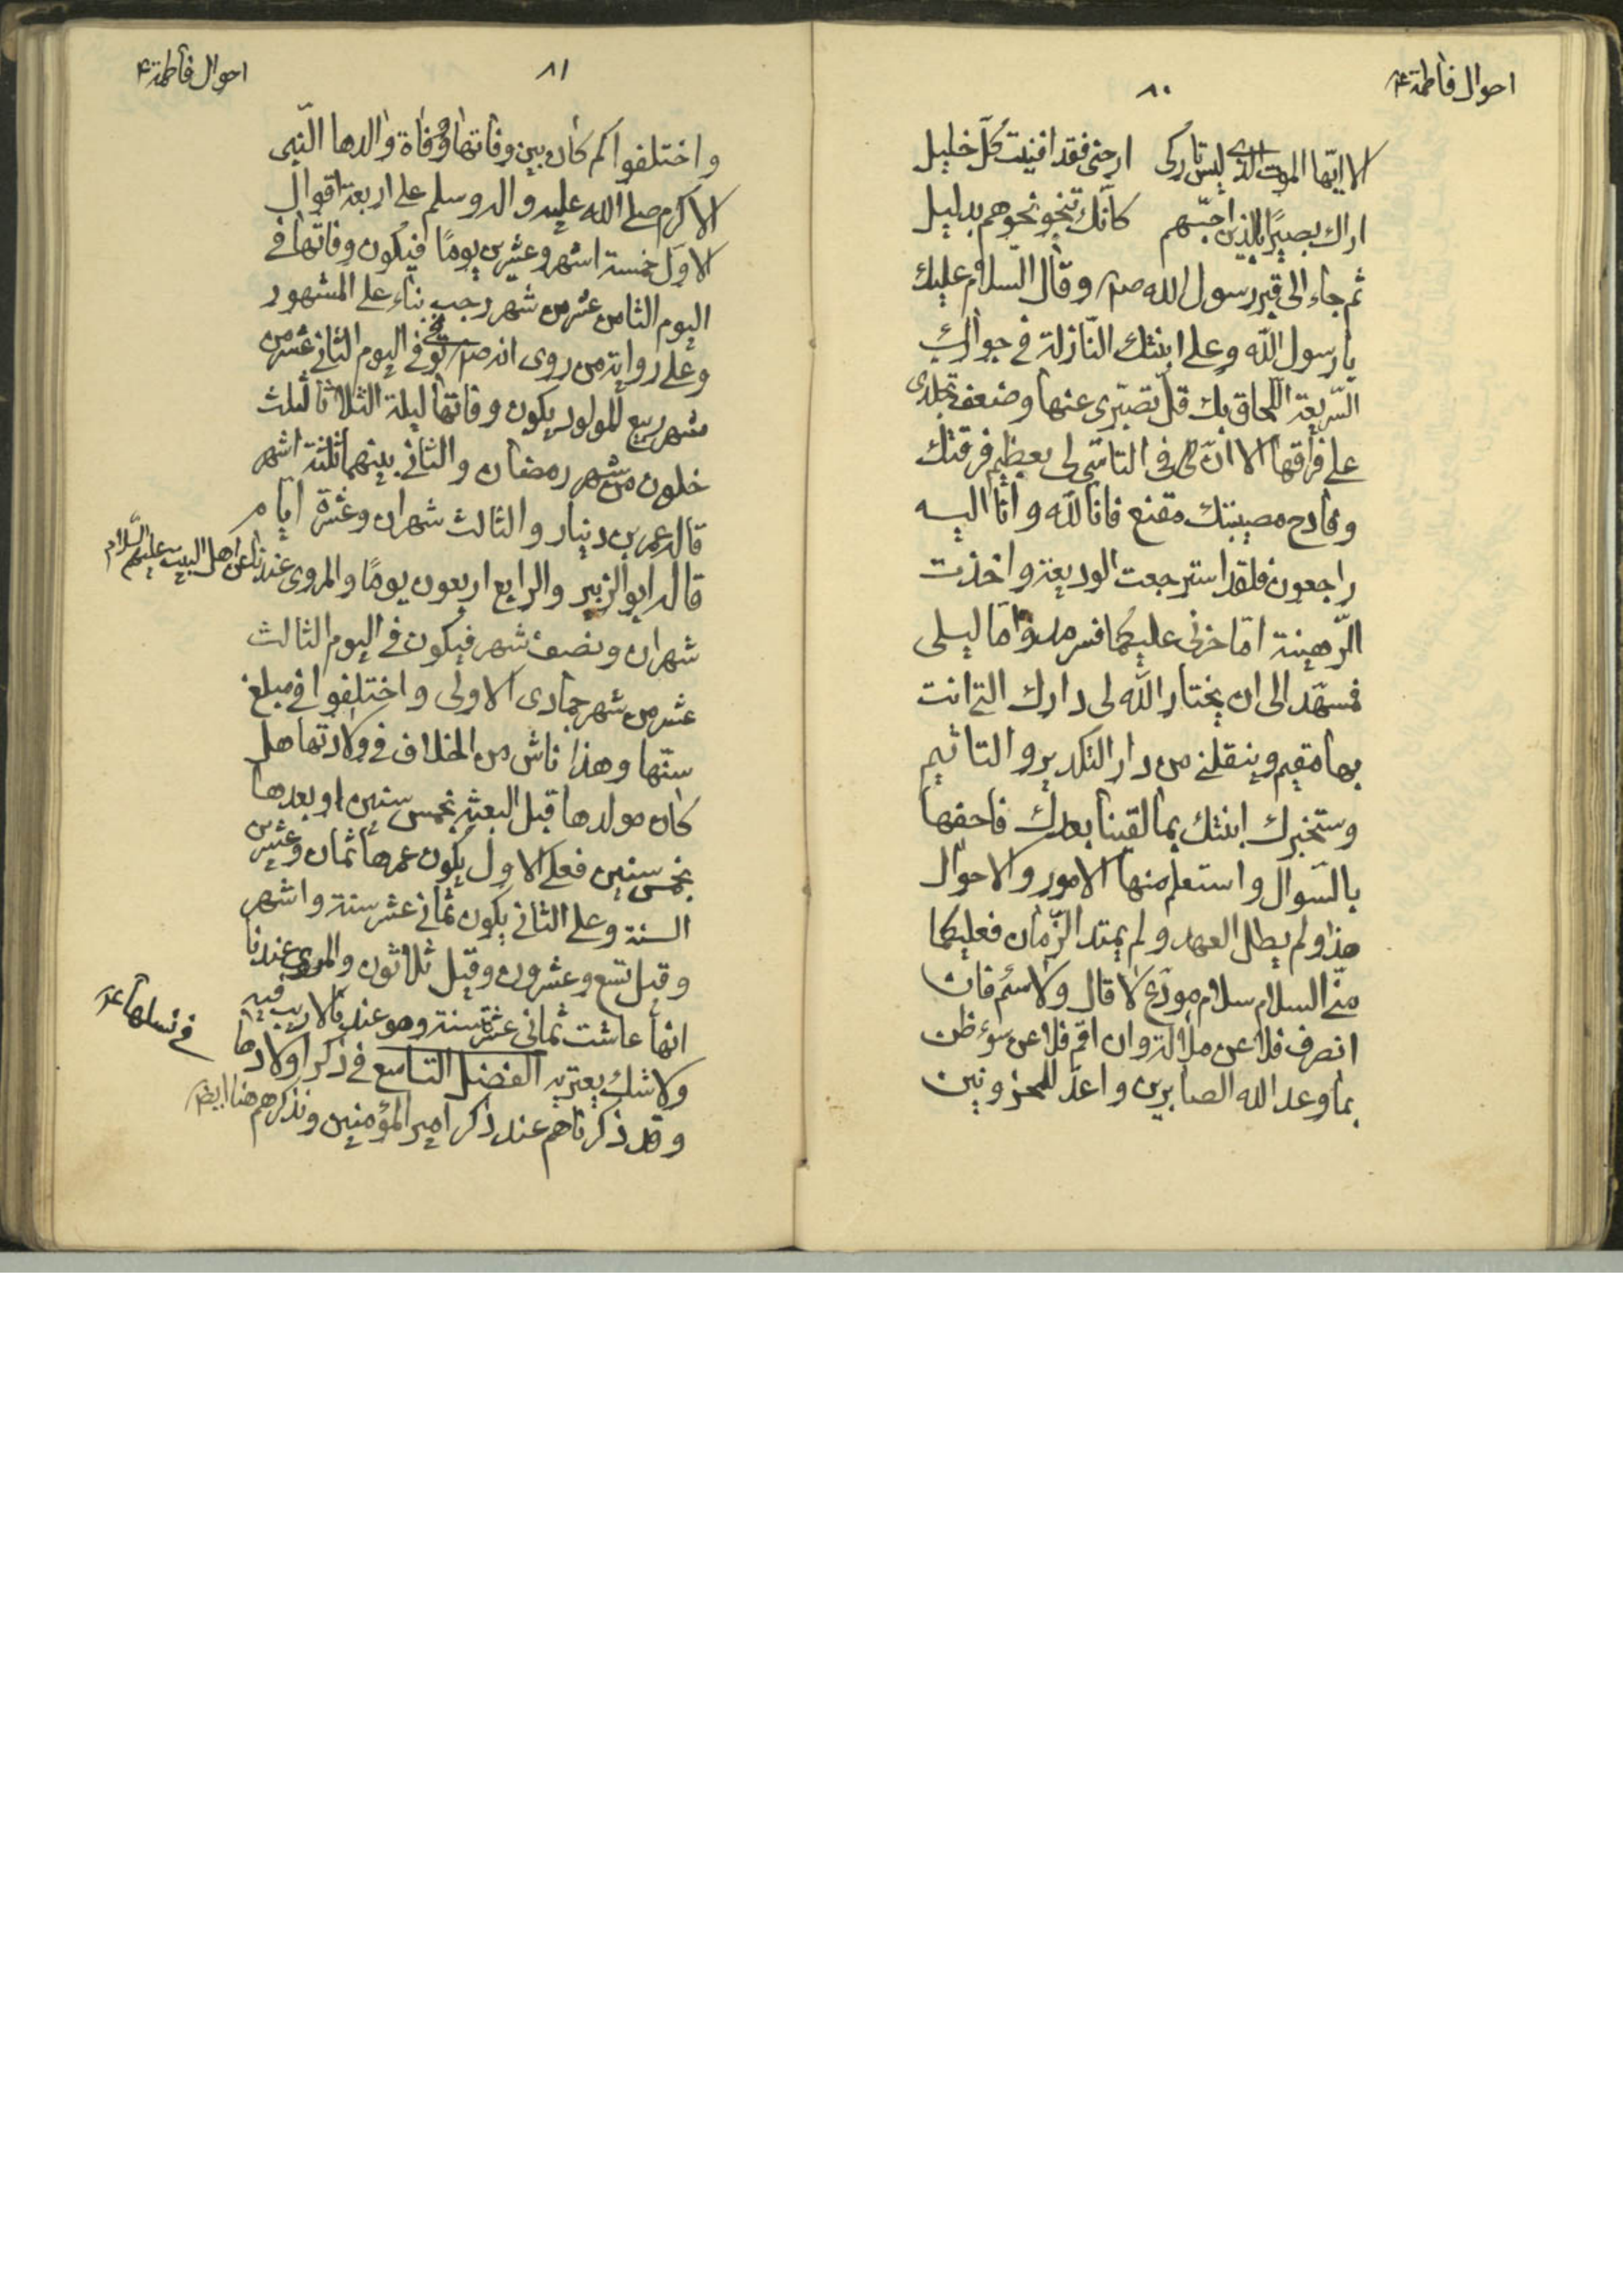 احوال فاطمة ع
٨٠
الا ايّها الموت الذى ليس تاركى ارحنى فقد افنيت كُلّ خليل
اراك بصيرًا بالذين احبّهم كانّك تنحو نحوهم بدليل
ثم جاء الى قبر رسول الله صم وقال السّلام عليك
يا رسول الله وعلى ابنتك النّازلة في جوارك
السّريعة اللحاق بك قلّ تصبّرى عنها وضعف تجلدى
على فراقها الا انّ لى فى التاسّى لى بعظيم فرقتك
وفادح مصيبتك مقنع فانا لله وانا اليه
راجعون فلقد استرجعت الوديعة واخذت
الرّهينة امّا حزنى عليكما فسرمد وامّا ليلى
فمسهّد الى ان يختار الله لى دارك التى انت
بها مقيم وينقلنى من دار التكدير والتاثيم
وستخبرك ابنتك بما لقينا بعدك فاحفها
بالسّوال واستعلم منها الامور والاحوال
هذا ولم يطل العهد ولم يمتد الزّمان فعليكما
منّى السلام سلام مودّع لا قال ولا سئم فان
انصرف فلا عن ملالة وان اقم فلا عن سوء ظن
بما وعد الله الصابرين واعدّ للمحزونين
احوال فاطمة ع
٨١
واختلفوا كم كان بين وفاتها ووفاة والدها النّبى
الاكرم صلى الله عليه واله وسلم على اربعة اقوال
الاوّل خمسة اشهر وعشرين يومًا فيكون وفاتها فى
اليوم الثامن عشر من شهر رجب بناء على المشهور
وعلى رواية من روى انه صم توفى فى اليوم الثانى عشر من
شهر ربيع المولود يكون وفاتها ليلة الثلاثا لثلث
خلون من شهر رمضان والثانى بينهما ثلثة اشهر
قاله عمر بن دينار والثالث شهران وعشرة ايام
قاله ابو الزبير والرابع اربعون يومًا والمروى عندنا عن اهل البيت عليهم السّلام
شهران ونصف شهر فيكون فى اليوم الثالث
عشر من شهر جمادى الاولى واختلفوا فى مبلغ
سنّها وهذا ناش من الخلاف فى ولادتها هل
كان مولدها قبل البعثة بخمس سنين او بعدها
بخمس سنين فعلى الاول يكون عمرها ثمان وعشرين
السنة وعلى الثانى يكون ثمانى عشر سنة واشهر
وقيل تسع وعشرون وقيل ثلاثون والمروى عندنا
انها عاشت ثمانى عشرة سنة وهو عندنا لا ريب فيه
ولا شك يعتريه الفصل التاسع فى ذكر اولادها
فى نسلها ع
وقد ذكرناهم عند ذكر امير المؤمنين ونذكرهم هنا ايضا